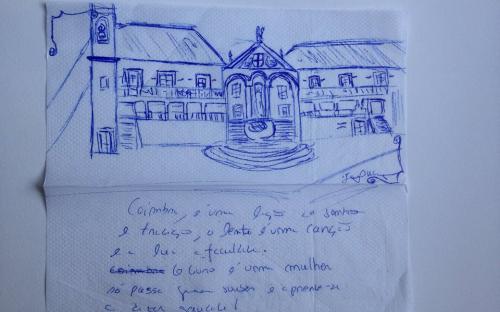 Coimbra, é uma lição de sonho
e tradição, o lente é uma canção
e a lua a faculdade.
O livro é uma mulher
só passa quem souber e aprende-se
a dizer saudade!